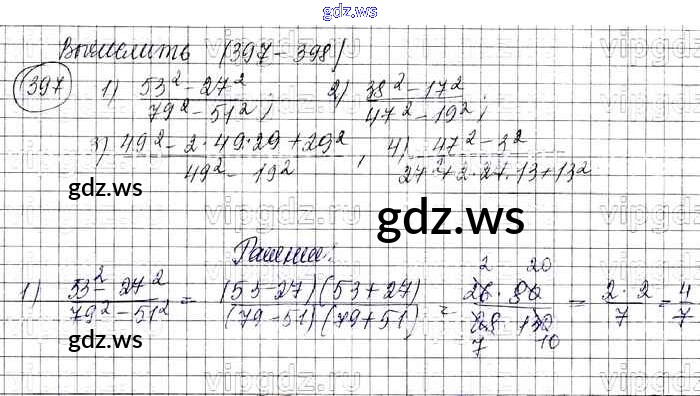 gdz.ws
Вычислить (397-398)
397 1) (53² - 27²)/(79² - 51²); 2) (38² - 17²)/(47² - 19²);
3) (49² - 2·49·29 + 29²)/(49² - 19²), 4) (47² - 3²)/(27² + 2·27·13 + 13²)
gdz.ws
gdz.ws
Решение:
1) (53² - 27²)/(79² - 51²) = ((53-27)(53+27))/((79-51)(79+51)) = (26·80)/(28·130) = (2·2)/7 = 4/7
2 20
7 10
gdz.ws